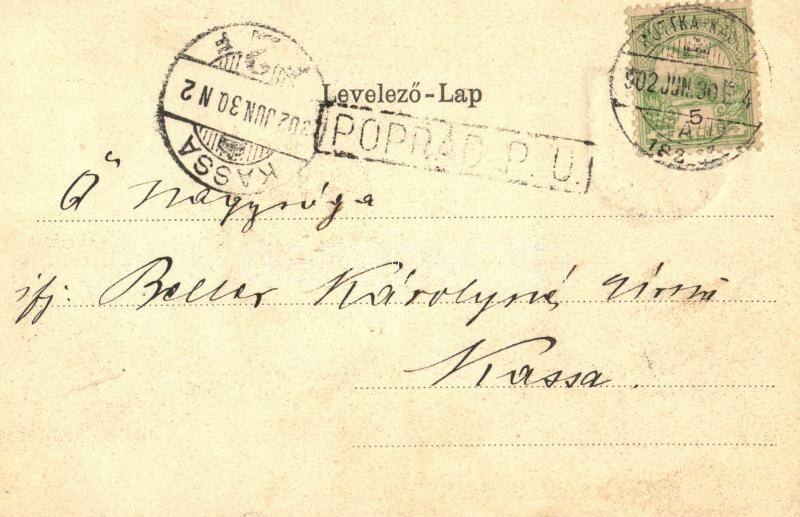 RUTTKA-
902 JUN. 30
5
KASSA
902 JUN. 30. N 2
Levelező-Lap
POPRÁD P. U.
Ő Nagysága
ifj: Beller Károlyné úrnő
Kassa.